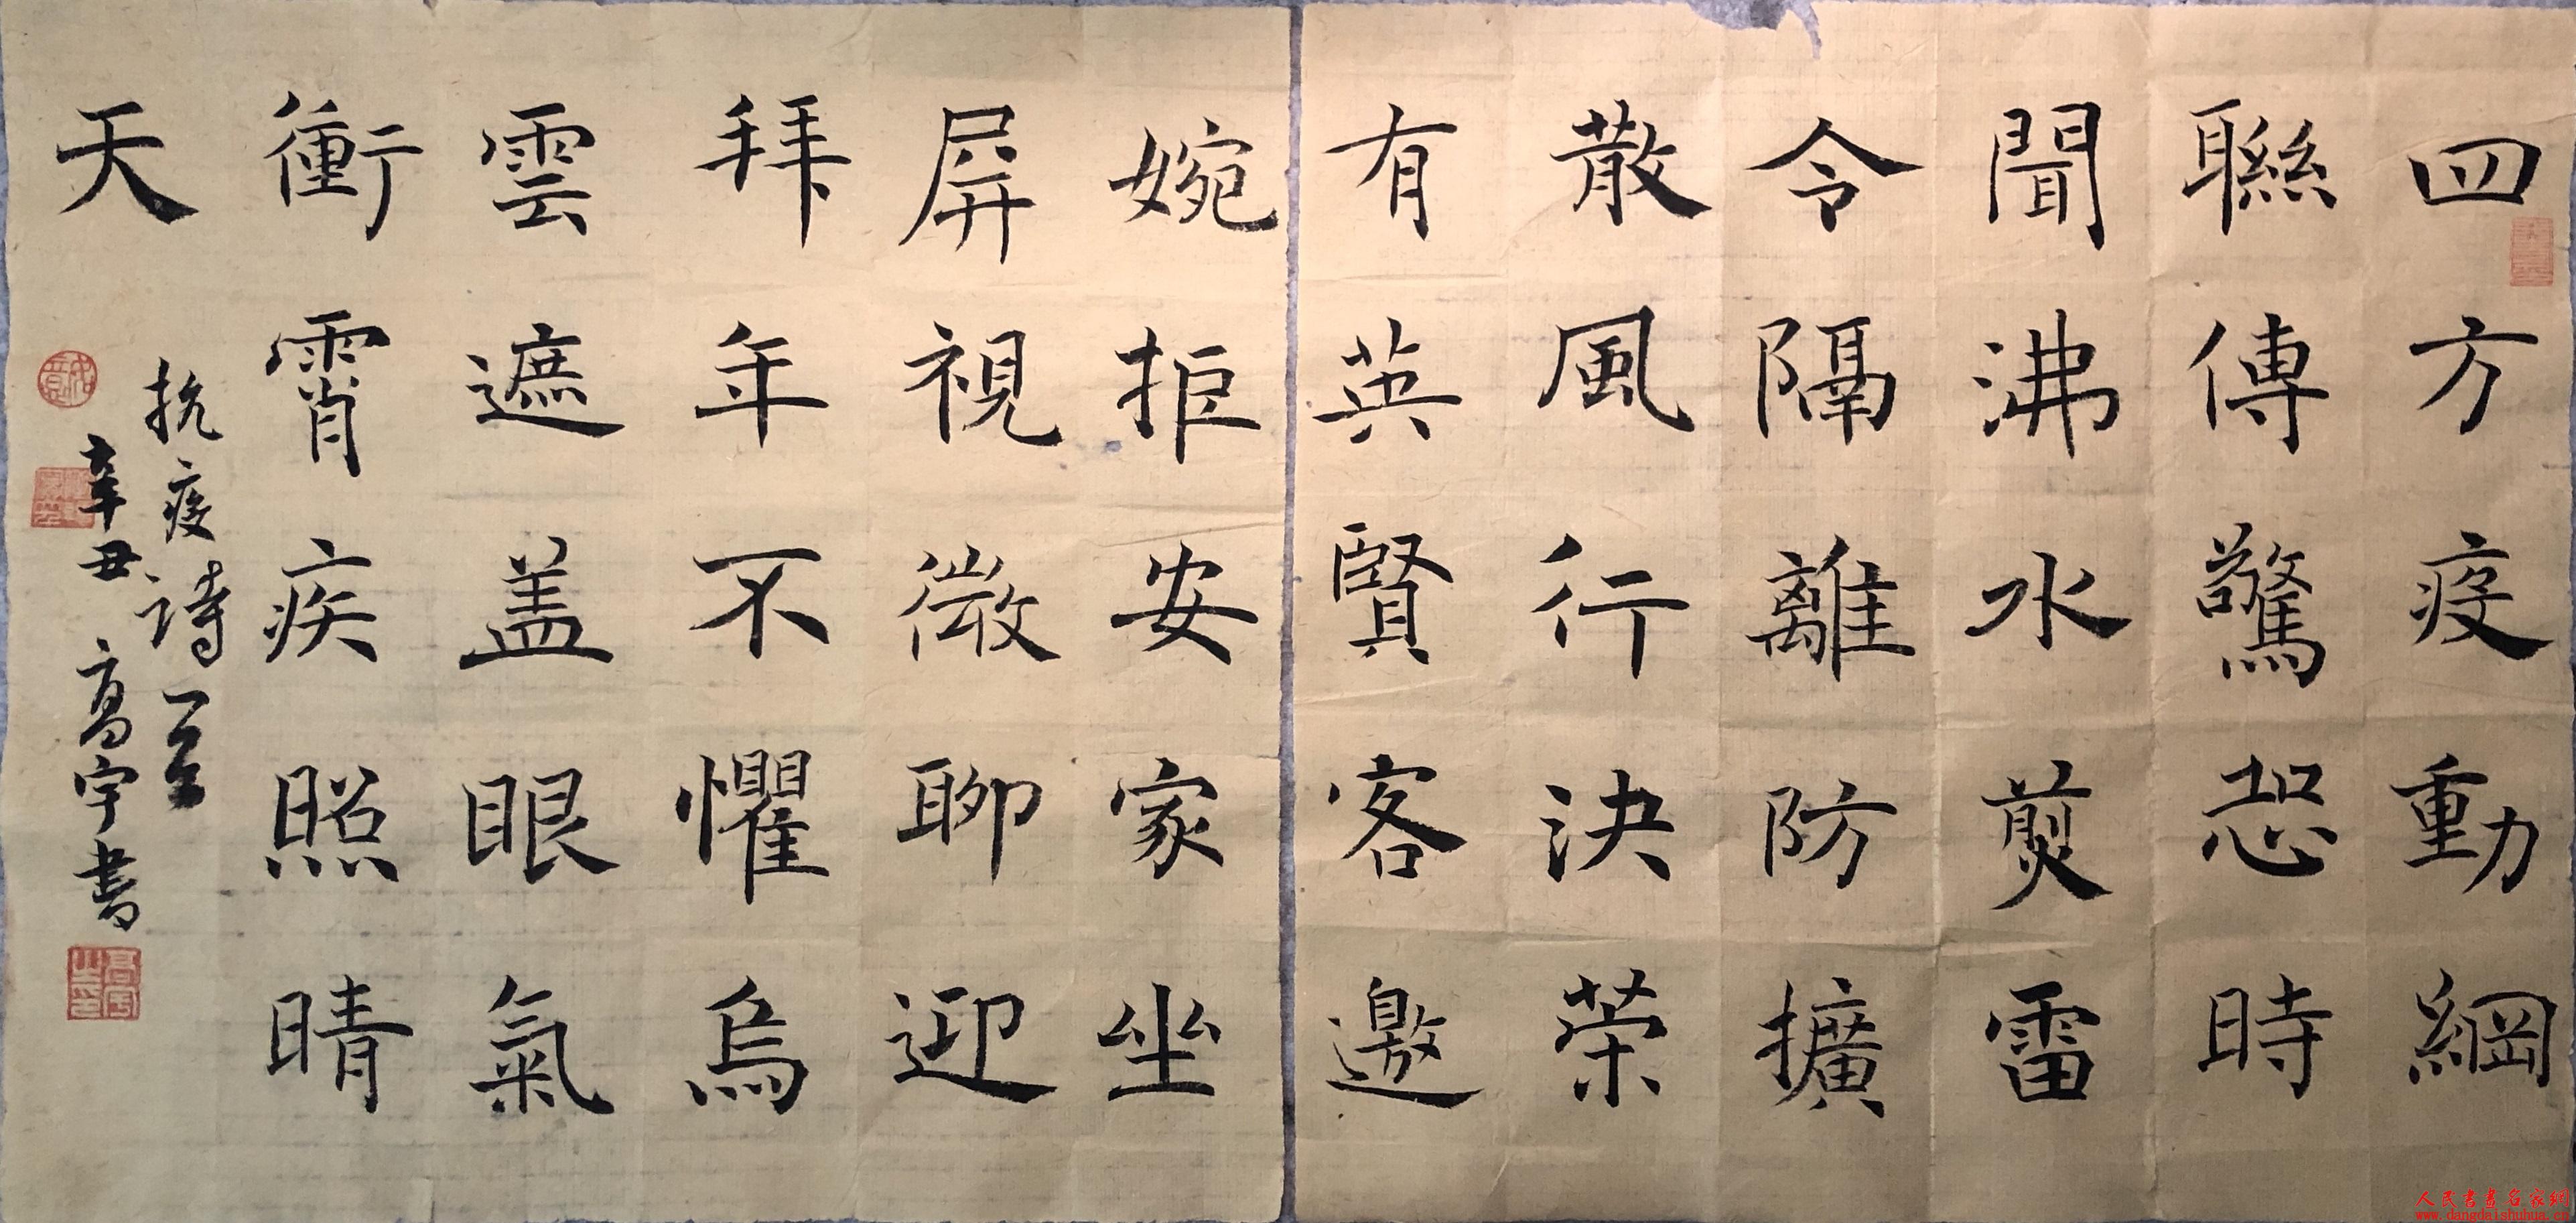 四方疫動網
聯傳驚恐時
聞沸水煎雷
令隔離防擴
散風行決榮
有英賢客邀
婉拒安家坐
屏視微聊迎
拜年不懼烏
雲遮盖眼氣
衝霄疾照晴
天
抗疫詩一首
辛丑 高宇書
人民書畫名家網
www.dangdaishuhua.cn